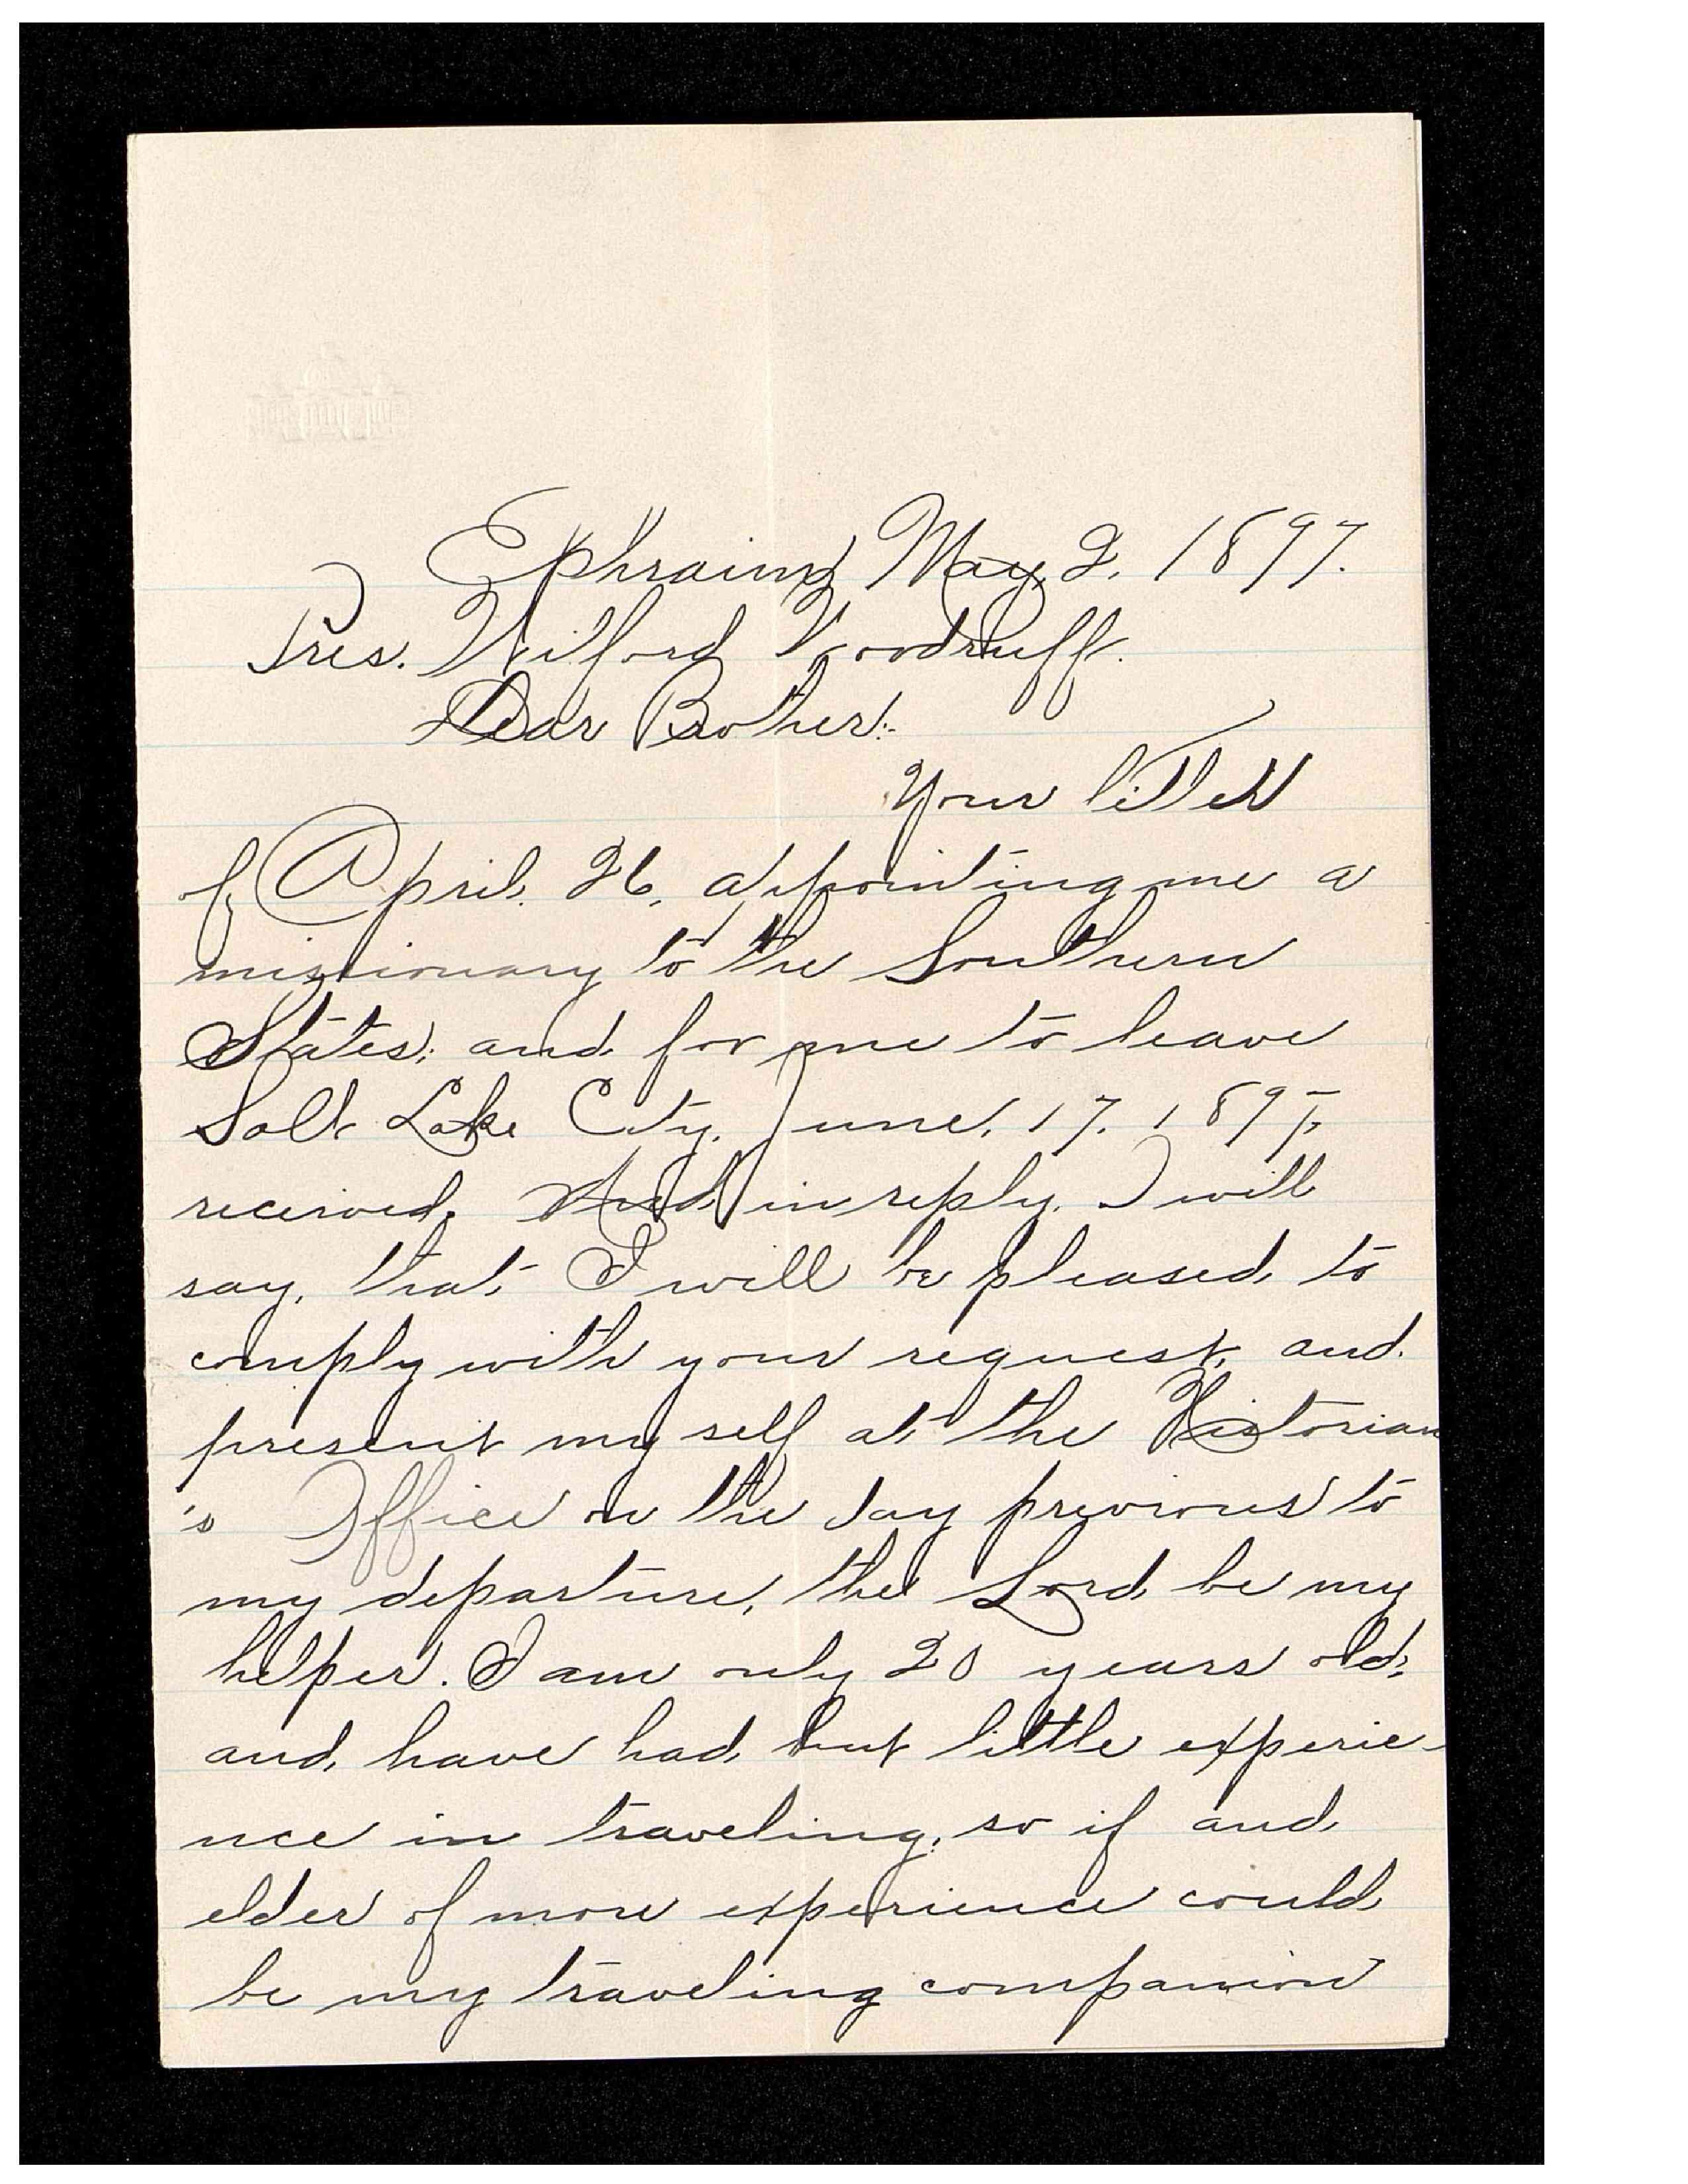 Ephraim, May, 2, 1897.
Pres. Wilford Woodruff.
Dear Brother:-
Your letter
of April. 26, appointing me a
missionary to the Southern
States; and for me to leave
Salt Lake City, June, 17. 1897,
received. And in reply. I will
say, that I will be pleased to
comply with your request, and
present my self at the Historian
's Office on the day previous to
my departure, the Lord be my
helper. I am only 20 years old,
and have had but little experie-
nce in traveling, so if and
elder of more experience could
be my traveling companion